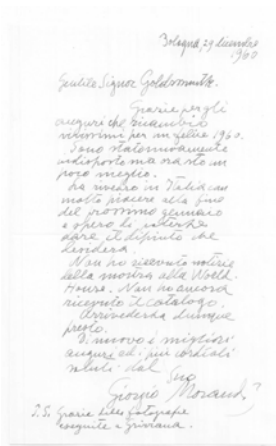 Bologna, 29 dicembre
1960
Gentile Signor Goldsmith,
Grazie per gli
auguri che ricambio
vivissimi per un felice 1960.
Sono stato nuovamente
indisposto ma ora sto un
poco meglio.
La rivedrò in Italia con
molto piacere alla fine
del prossimo gennaio
e spero di poterle
dare il dipinto che
desidera.
Non ho ricevuto notizie
della mostra alla World
House. Non ho ancora
ricevuto il catalogo.
Arrivederla dunque
presto.
Di nuovo i migliori
auguri ed i più cordiali
saluti dal
Suo
Giorgio Morandi
P.S. Grazie delle fotografie
eseguite a Grizzana.